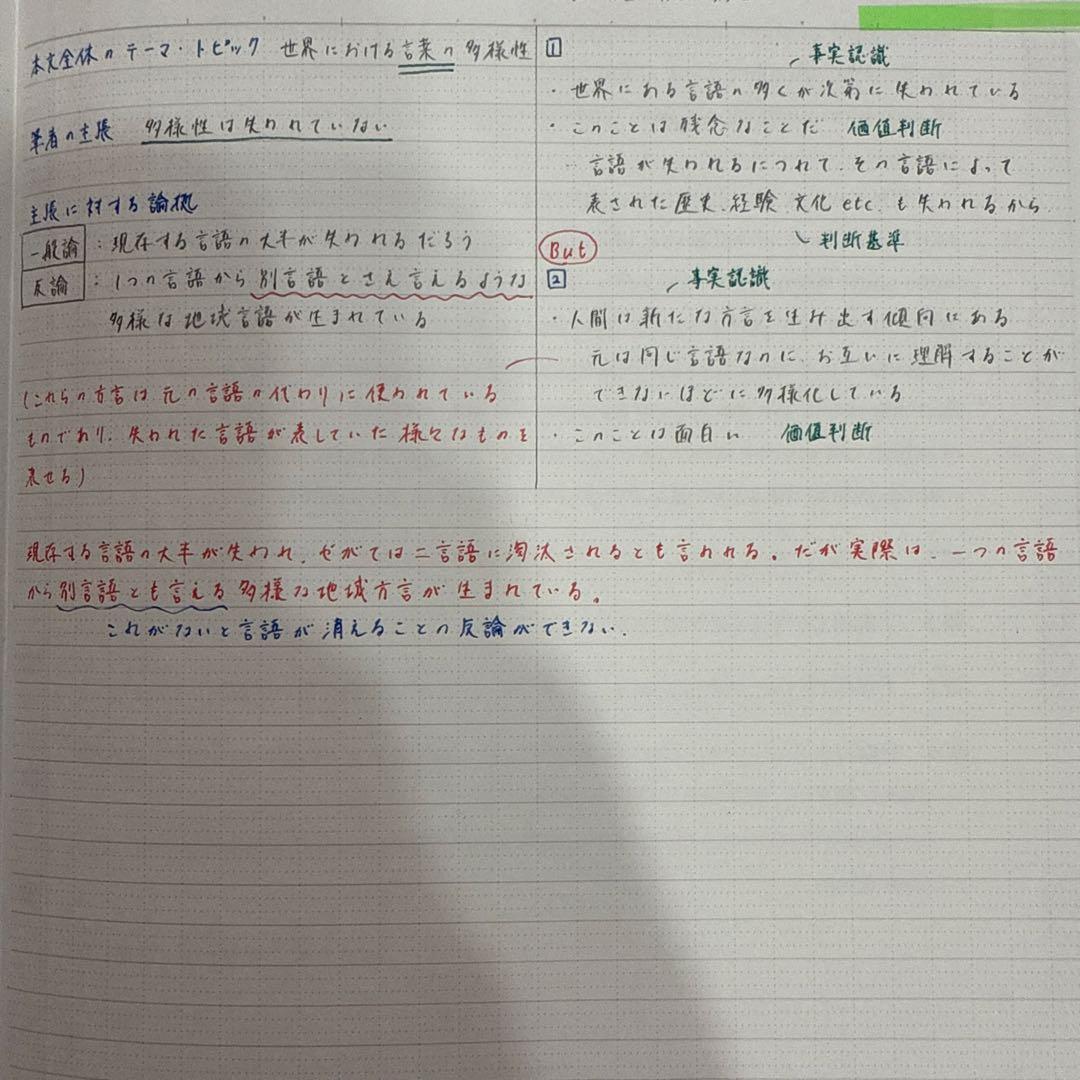 本文全体のテーマ・トピック 世界における言葉の多様性
筆者の主張 多様性は失われていない
主張に対する論拠
一般論：現存する言語の大半が失われるだろう
反論：1つの言語から別言語とさえ言えるような
多様な地域言語が生まれている
(これらの方言は元の言語の代わりに使われている
ものであり、失われた言語が表していた様々なものを
表せる)
1
事実認識
・世界にある言語の多くが次第に失われている
・このことは残念なことだ 価値判断
言語が失われるにつれて、その言語によって
表された歴史、経験、文化etc.も失われるから
判断基準
But
2
事実認識
・人間は新たな方言を生み出す傾向にある
元は同じ言語なのに、お互いに理解することが
できないほどに多様化している
・このことは面白い 価値判断
現存する言語の大半が失われ、ゼがては二言語に淘汰されるとも言われる。だが実際は、一つの言語
から別言語とも言える多様な地域方言が生まれている。
これがないと言語が消えることの反論ができない.